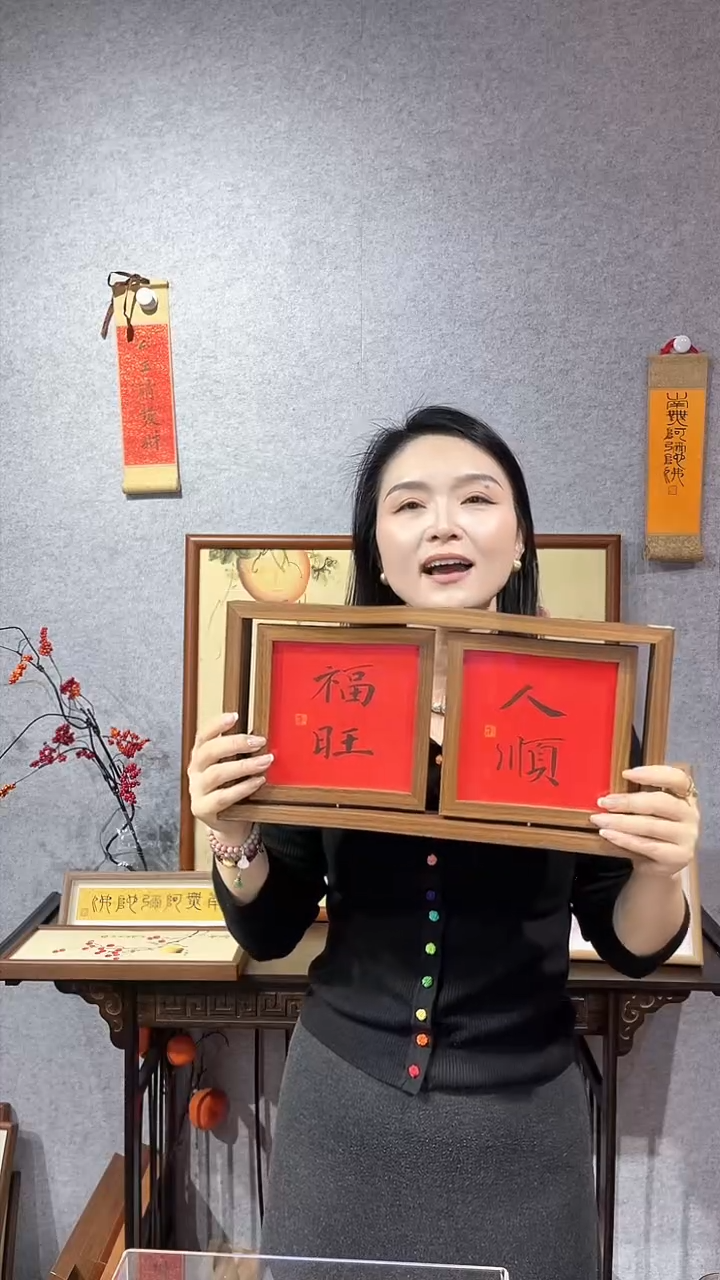 福旺
人順
南無阿彌陀佛
南無阿彌陀佛